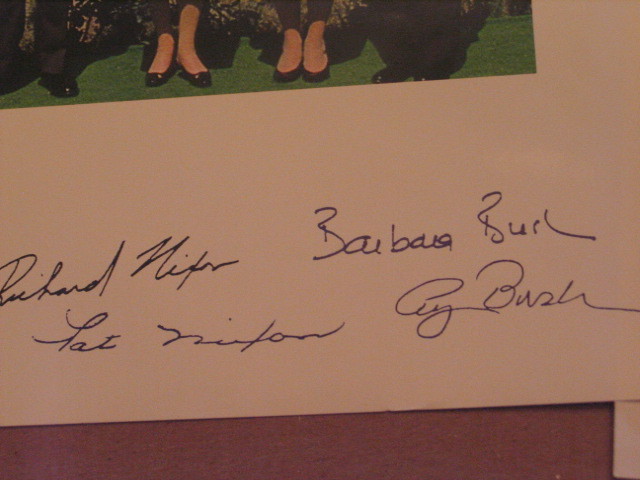 Richard Nixon
Pat Nixon
Barbara Bush
Bush